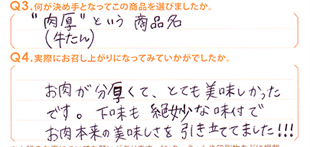 Q3.何が決め手となってこの商品を選びましたか。
"肉厚"という 商品名
(牛たん)
Q4.実際にお召し上がりになってみていかがでしたか。
お肉が分厚くて、とても美味しかった
です。下味も絶妙な味付で
お肉本来の美味しさを引き立ててました!!!